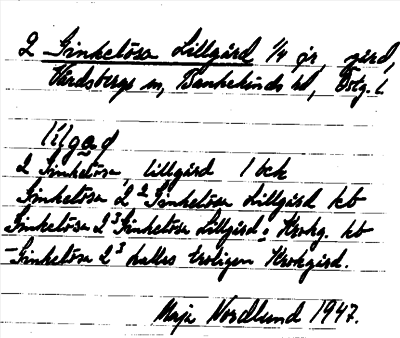 2 Sinkelösa Lillgård 1/4 gr, gård,
Vårdsbergs sn, Bankekinds hd, Östg. l
lilgaḍ
2 Sinkelösa, lillgård 1 bek
Sinkelösa 2² Sinkelösa Lillgård kb
Sinkelösa 2³ Sinkelösa Lillgård o Krokg. kb
– Sinkelösa 2³ kallas troligen Krokgård.
Maja Nordlund 1947.